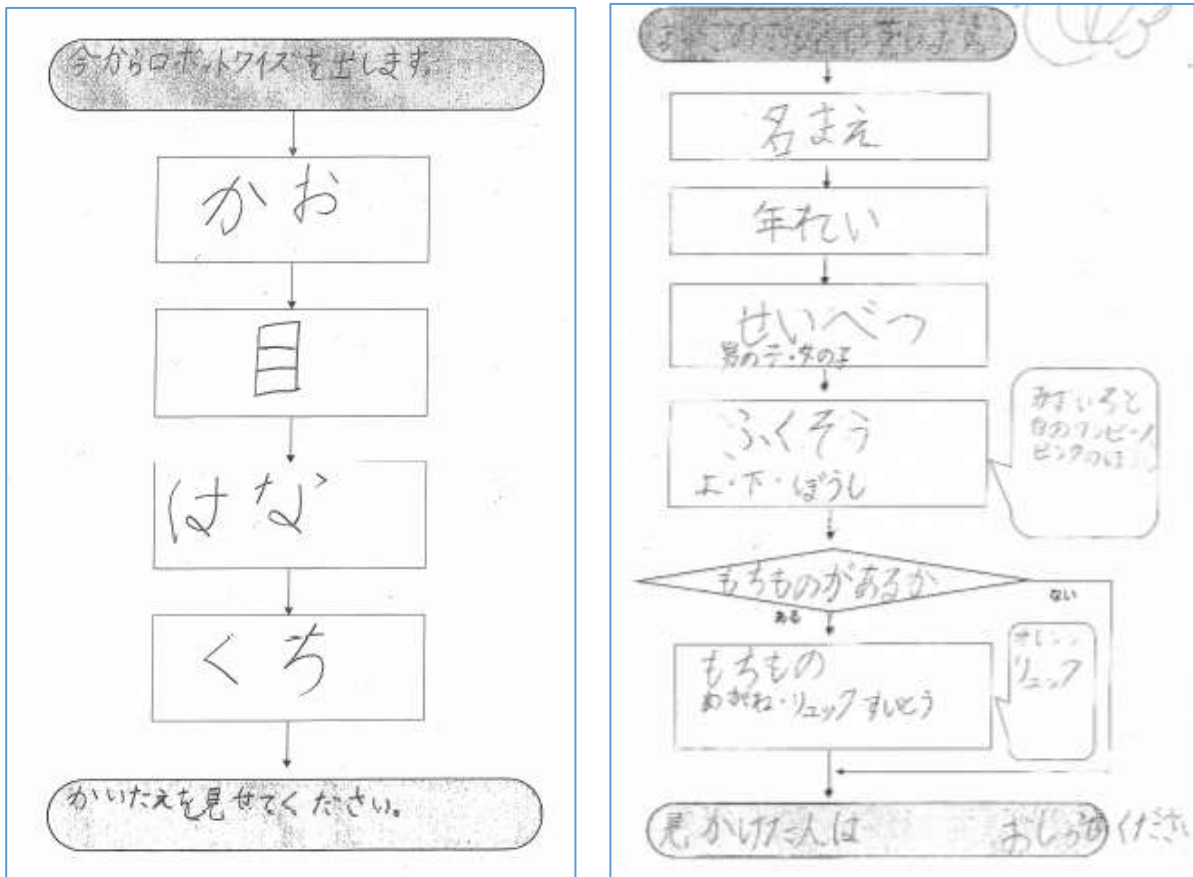 今からロボットクイズを出します。
かお
目
はな
くち
かいたえを見せてください。
名まえ
年れい
せいべつ
男の子・女の子
ふくそう
上・下・ぼうし
みずいろと
白のワンピース
ピンクのぼ
もちものがあるか
ない
ある
もちもの
めがね・リュックすいとう
リュック
見かけた人は
ください